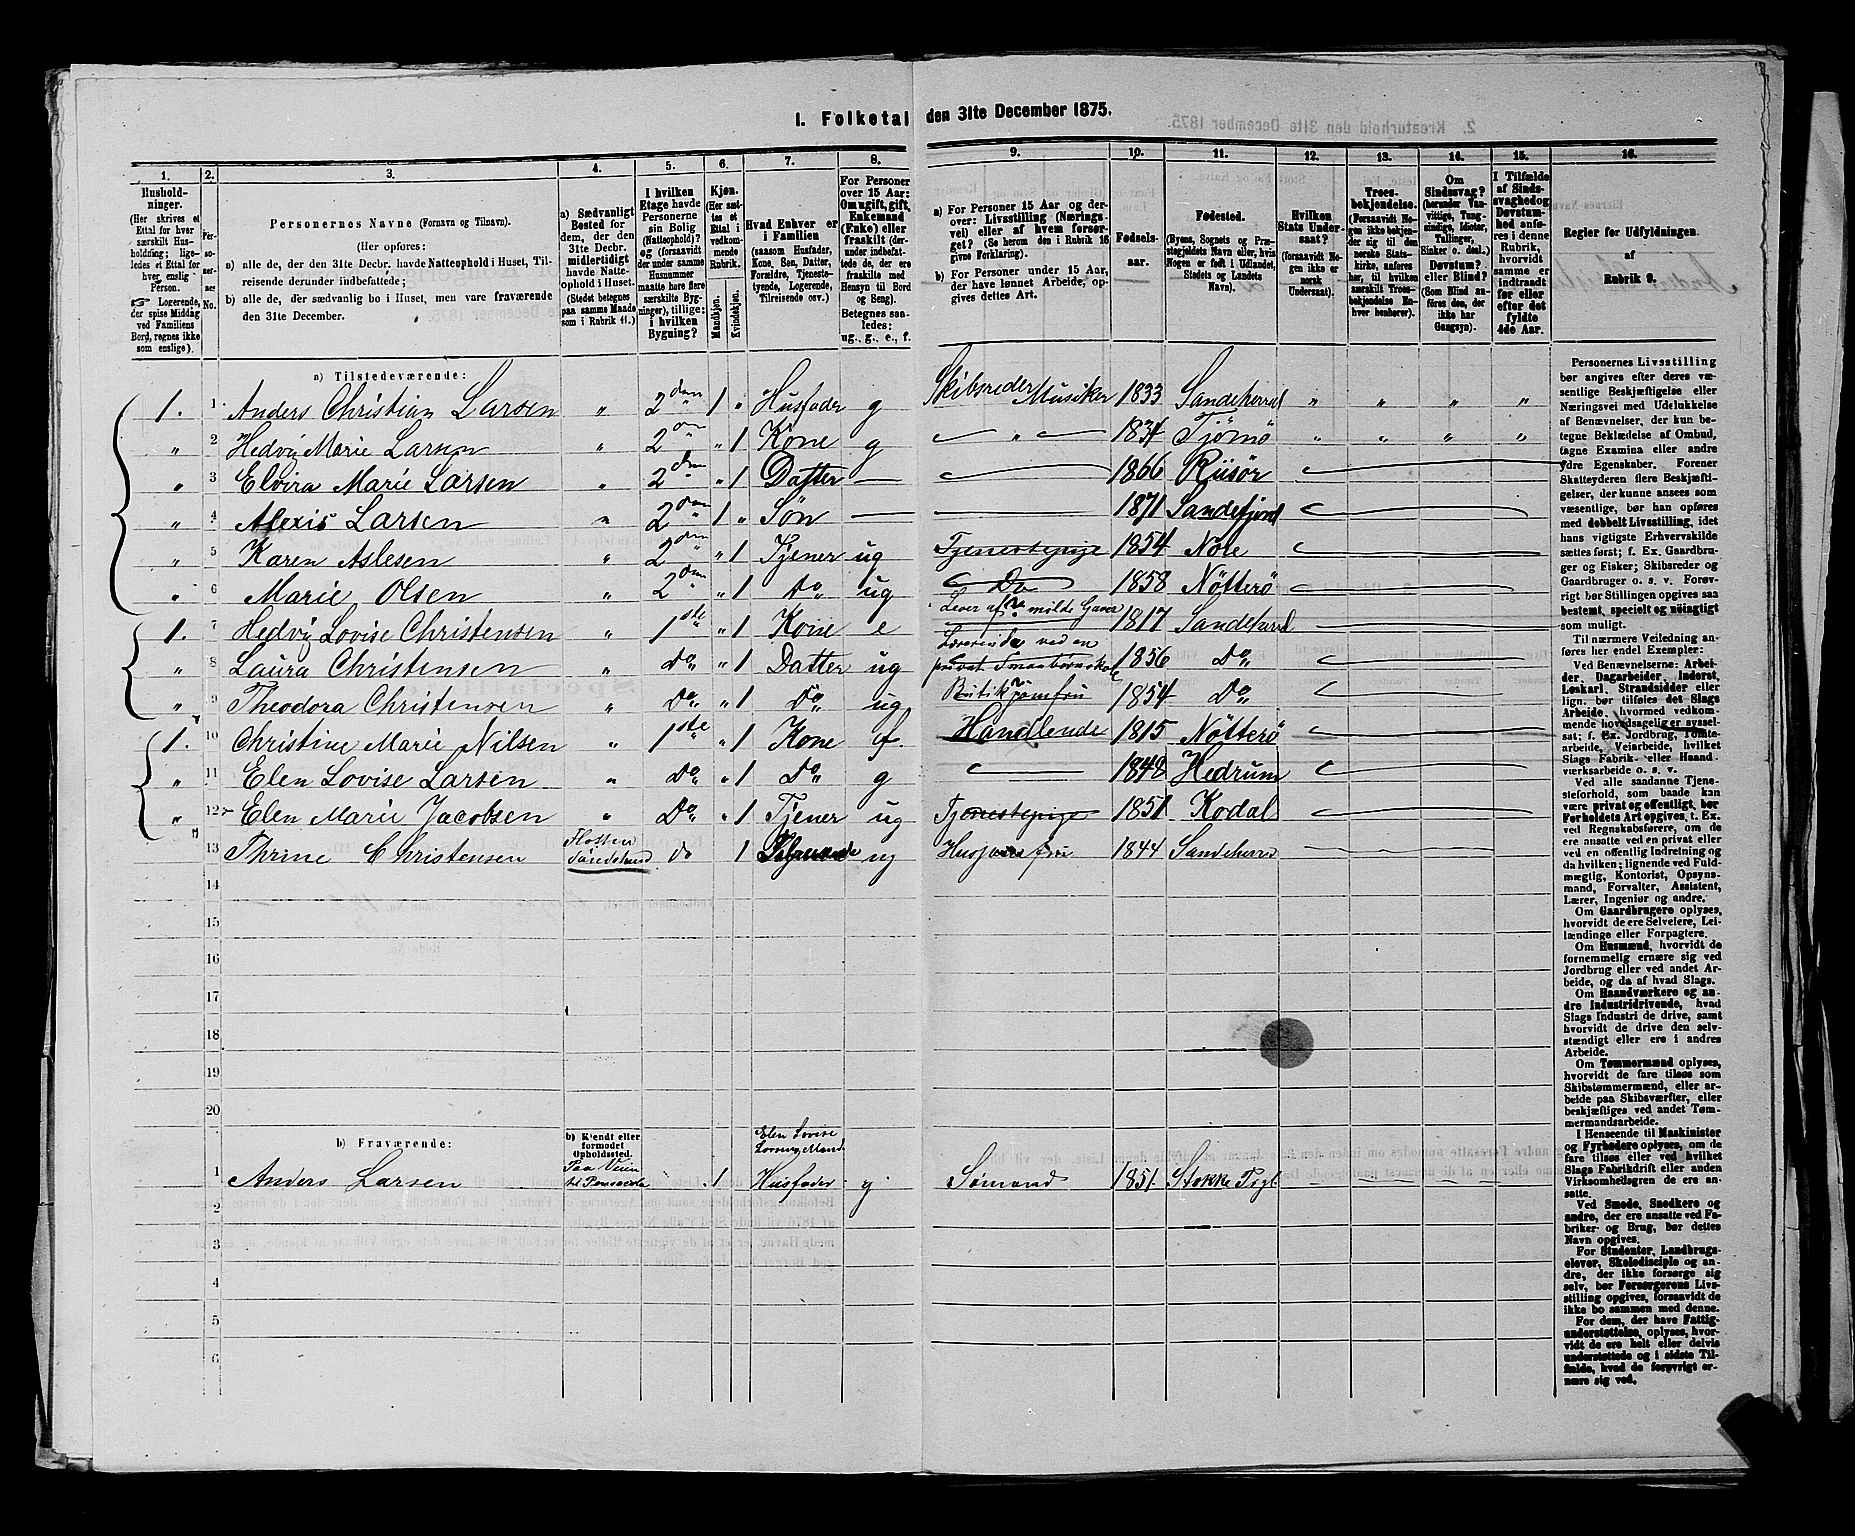 I. Folketal den 31te December 1875.
1. 2. 3. 4. 5. 6. 7. 8. 9. 10. 11. 12. 13. 14. 15. 16.
Husholdninger.
(Her skrives et Ettal for hver særskilt Husholdning; ligeledes et Ettal for hver enslig Person.
☞ Logerende, der spise Middag ved Familiens Bord, regnes ikke som enslige).
Personernes No.
Personernes Navne (Fornavn og Tilnavn).
(Her opføres:
a) alle de, der den 31te Decbr. havde Natteophold i Huset, Tilreisende derunder indbefattede;
b) alle de, der sædvanlig bo i Huset, men vare fraværende den 31te December.
a) Sædvanligt Bosted for dem, der den 31te Decbr. midlertidigt havde Natteophold i Huset.
(Stedet betegnes paa samme Maade som i Rubrik 11.)
I hvilken Etage havde Personerne sin Bolig (Natteophold)? og (forsaavidt der under samme Husnummer maatte høre flere særskilte Bygninger), tillige: i hvilken Bygning?
Kjøn.
(Her sættes et Ettal i vedkommende Rubrik.
Mandkjøn. Kvindekjøn.
Hvad Enhver er i Familien
(saasom Husfader, Kone, Søn, Datter, Forældre, Tjenestetyende, Logerende, Tilreisende osv.)
For Personer over 15 Aar: Om ugift, gift, Enkemand (Enke) eller fraskilt (derunder indbefattede de, der ere fraskilte med Hensyn til Bord og Seng).
Betegnes saaledes: ug., g., e., f.
a) For Personer 15 Aar og derover: Livsstilling (Næringsvei) eller af hvem forsørget? (Se herom den i Rubrik 16 givne Forklaring).
b) For Personer under 15 Aar, der have lønnet Arbeide, opgives dettes Art.
Fødselsaar.
Fødested.
(Byens, Sognets og Præstegjeldets Navn eller, hvis Nogen er født i Udlandet, Stedets og Landets Navn).
Hvilken Stats Undersaat?
(forsaavidt Nogen ikke er norsk Undersaat).
Troesbekjendelse.
(Forsaavidt Nogen ikke bekjender sig til den norske Statskirke, anføres her, til hvilken Troesbekjendelse Enhver henhører).
Om Sindssvag?
(herunder Vanvittige, Tungsindige, Idioter, Tullinger, Sinker o. desl.).
Døvstum? eller Blind?
(Som Blind anføres den, der ikke har Gangsyn).
I Tilfælde af Sindssvaghed og Døvstumhed anføres i denne Rubrik, hvorvidt samme er indtraadt før eller efter det fyldte 4de Aar.
Regler for Udfyldningen.
af
Rubrik 9.
a) Tilstedeværende:
1. 1 Anders Christian Larsen „ 2den 1 „ Husfader g Skibsreder Musiker 1833 Sandeherred „ „ „ „
„ 2 Hedvig Marie Larsen „ 2den „ 1 Kone g „ 1834 Tjømø „ „ „ „
„ 3 Elvira Marie Larsen „ 2den „ 1 Datter — 1866 Riisør
„ 4 Alexis Larsen „ 2den 1 „ Søn — 1871 Sandefjord
„ 5 Karen Aslesen „ 2den „ 1 Tjener ug Tjenestepige 1854
„ 6 Marie Olsen „ 2den „ 1 do „ ug Do 1858 Nøtterø
1. 7 Hedvig Lovise Christensen „ 1ste „ 1 Kone e Lever af milde Gaver 1817 Sandeherred
„ 8 Laura Christensen „ do „ „ 1 Datter ug Lærerinde ved en privat Smaabørnskole 1856 Do „
„ 9 Theodora Christensen „ do „ „ 1 Do „ ug Butikjomfru 1854 Do „
1. 10 Christine Marie Nilsen „ 1ste „ 1 Kone f. Handlende 1815 Nøtterø
„ 11 Elen Lovise Larsen „ do „ „ 1 Do „ g 1848 Hedrum
„ 12 Elen Marie Jacobsen „ Do „ „ 1 Tjener ug Tjenestepige 1851 Kodal
13 Thrine Christensen do 1 ug Husjomfru 1844 Sandeherred
14
15
16
17
18
19
20
b) Fraværende:
b) Kjendt eller formodet Opholdssted.
Elen Lovise Larsens Mand
1 Anders Larsen Paa Veien til Pensacola 1 Husfader g Sømand 1851 Stokke Pgl.
2
3
4
5
6
Personernes Livsstilling bør angives efter deres væsentlige Beskjæftigelse eller Næringsvei med Udelukkelse af Benævnelser, der kun betegne Beklædelse af Ombud, tagne Examina eller andre ydre Egenskaber. Forener Skatteyderen flere Beskjæftigelser, der kunne ansees som væsentlige, bør han opføres med dobbelt Livsstilling, idet hans vigtigste Erhvervskilde sættes først; f. Ex. Gaardbruger og Fisker; Skibsreder og Gaardbruger o. s. v. Forøvrigt bør Stillingen opgives saa bestemt, specielt og nøiagtigt som muligt.
Til nærmere Veiledning anføres her endel Exempler:
Ved Benævnelserne: Arbeider, Dagarbeider, Inderst, Løskarl, Strandsidder eller lign. bør tilføies det Slags Arbeide, hvormed vedkommende hovedsagelig er sysselsat; f. Ex. Jordbrug, Tomtearbeide, Veiarbeide, hvilket Slags Fabrik- eller Haandværksarbeide o. s. v.
Ved alle saadanne Tjenesteforhold, som baade kan være privat og offentligt, bør Forholdets Art opgives, t. Ex. ved Regnskabsførere, om de ere ansatte ved en privat eller ved en offentlig Indretning og da hvilken; lignende ved Fuldmægtig, Kontorist, Opsynsmand, Forvalter, Assistent, Lærer, Ingeniør og andre.
Om Gaardbrugere oplyses, hvorvidt de ere Selveiere, Leilændinge eller Forpagtere.
Om Husmænd, hvorvidt de fornemmelig ernære sig ved Jordbrug eller ved andet Arbeide, og da af hvad Slags.
Om Haandværkere og andre Industridrivende, hvad Slags Industri de drive, samt hvorvidt de drive den selvstændigt eller ere i andres Arbeide.
Om Tømmermænd oplyses, hvorvidt de fare tilsøs som Skibstømmermænd, eller arbeide paa Skibsværfter, eller beskjæftiges ved andet Tømmermandsarbeide.
I Henseende til Maskinister og Fyrbødere oplyses, om de fare tilsøs eller ved hvilket Slags Fabrikdrift eller anden Virksomhedsgren de ere ansatte.
Ved Smede, Snedkere og andre, der ere ansatte ved Fabriker og Brug, bør dettes Navn opgives.
For Studenter, Landbrugselever, Skoledisciple og andre, der ikke forsørge sig selv, bør Forsørgerens Livsstilling opgives, forsaavidt de ikke bo sammen med denne.
For dem, der have Fattigunderstøttelse, oplyses, hvorvidt de ere helt eller delvis understøttede og i sidste Tilfælde, hvad de forøvrigt ernære sig ved.